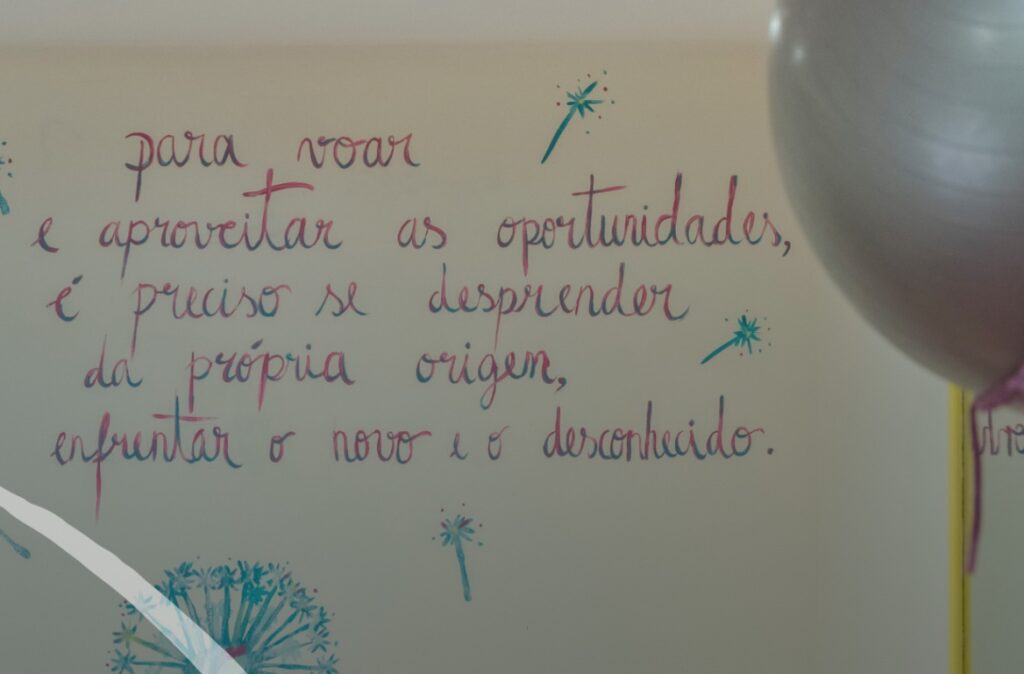 para voar
e aproveitar as oportunidades,
é preciso se desprender
da própria origen,
enfrentar o novo e o desconhecido.